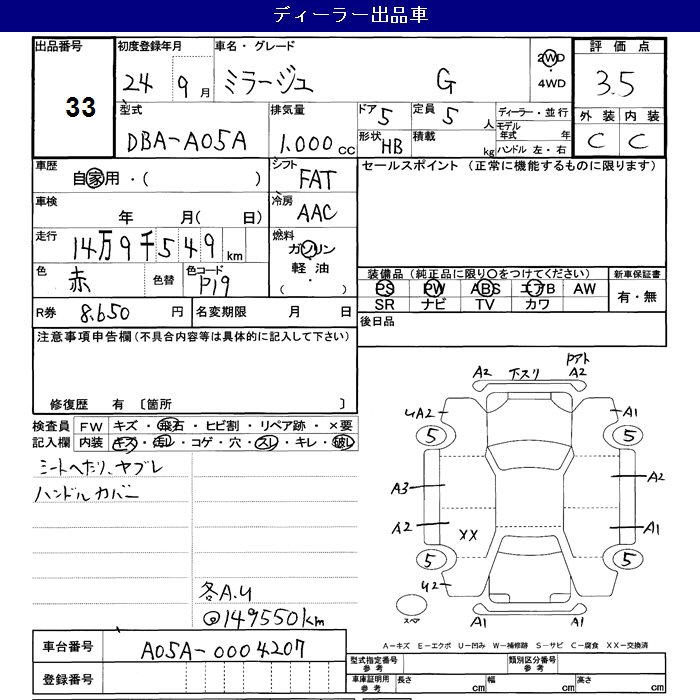 ディーラー出品車
出品番号 33
初度登録年月 24 9月
車名・グレード ミラージュ G
2WD・4WD
評価点 3.5
型式 DBA-A05A
排気量 1.000cc
ドア 5 定員 5人
形状 HB 積載 kg
ディーラー・並行
モデル年式 年
ハンドル 左・右
外装 内装
C C
車歴 自家用・( )
シフト FAT
セールスポイント (正常に機能するものに限ります)
車検 年 月( 日)
冷房 AAC
走行 14万9千549km
燃料 ガソリン・軽油・( )
色 赤 色替 色コード P19
装備品(純正品に限り○をつけてください) 新車保証書
PS PW ABS エアB AW
SR ナビ TV カワ
有・無
R券 8.650円 名変期限 月 日
後日品
注意事項申告欄(不具合内容等は具体的に記入して下さい)
修復歴 有 〔箇所 〕
検査員記入欄 FW キズ・飛石・ヒビ割・リペア跡・×要
内装 キズ・汚れ・コゲ・穴・スレ・キレ・破レ
シートへたり、ヤブレ
ハンドルカバー
各A.U
◎149550km
A2 下スリ A2
UA2 A1
5 5
A3 A2
A2 XX A1
5 5
U2
スペア A1 A1
A-キズ E-エクボ U-凹み W-補修跡 S-サビ C-腐食 XX-交換済
車台番号 A05A-0004207
登録番号
型式指定番号 参考 類別区分番号 参考
車庫証明用 参考 長さ cm 幅 cm 高さ cm